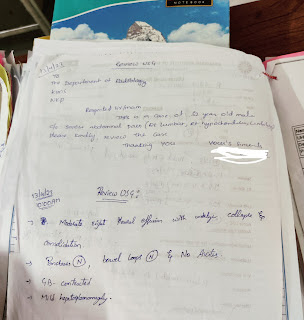 NOTEBOOK
Review USG
To
The Department of Radiology
Respected Sir/mam
This is a case of 13 year old male
c/o severe abdominal pain (Rt lumbar, Rt hypochondrium
Please kindly review the case
Thanking you
Review USG:
→ Moderate right Pleural effusion with underlying collapse &
consolidation.
→ Pancreas (N), bowel loops (N) & No Ascites
→ GB - contracted
→ Mild hepatosplenomegaly.